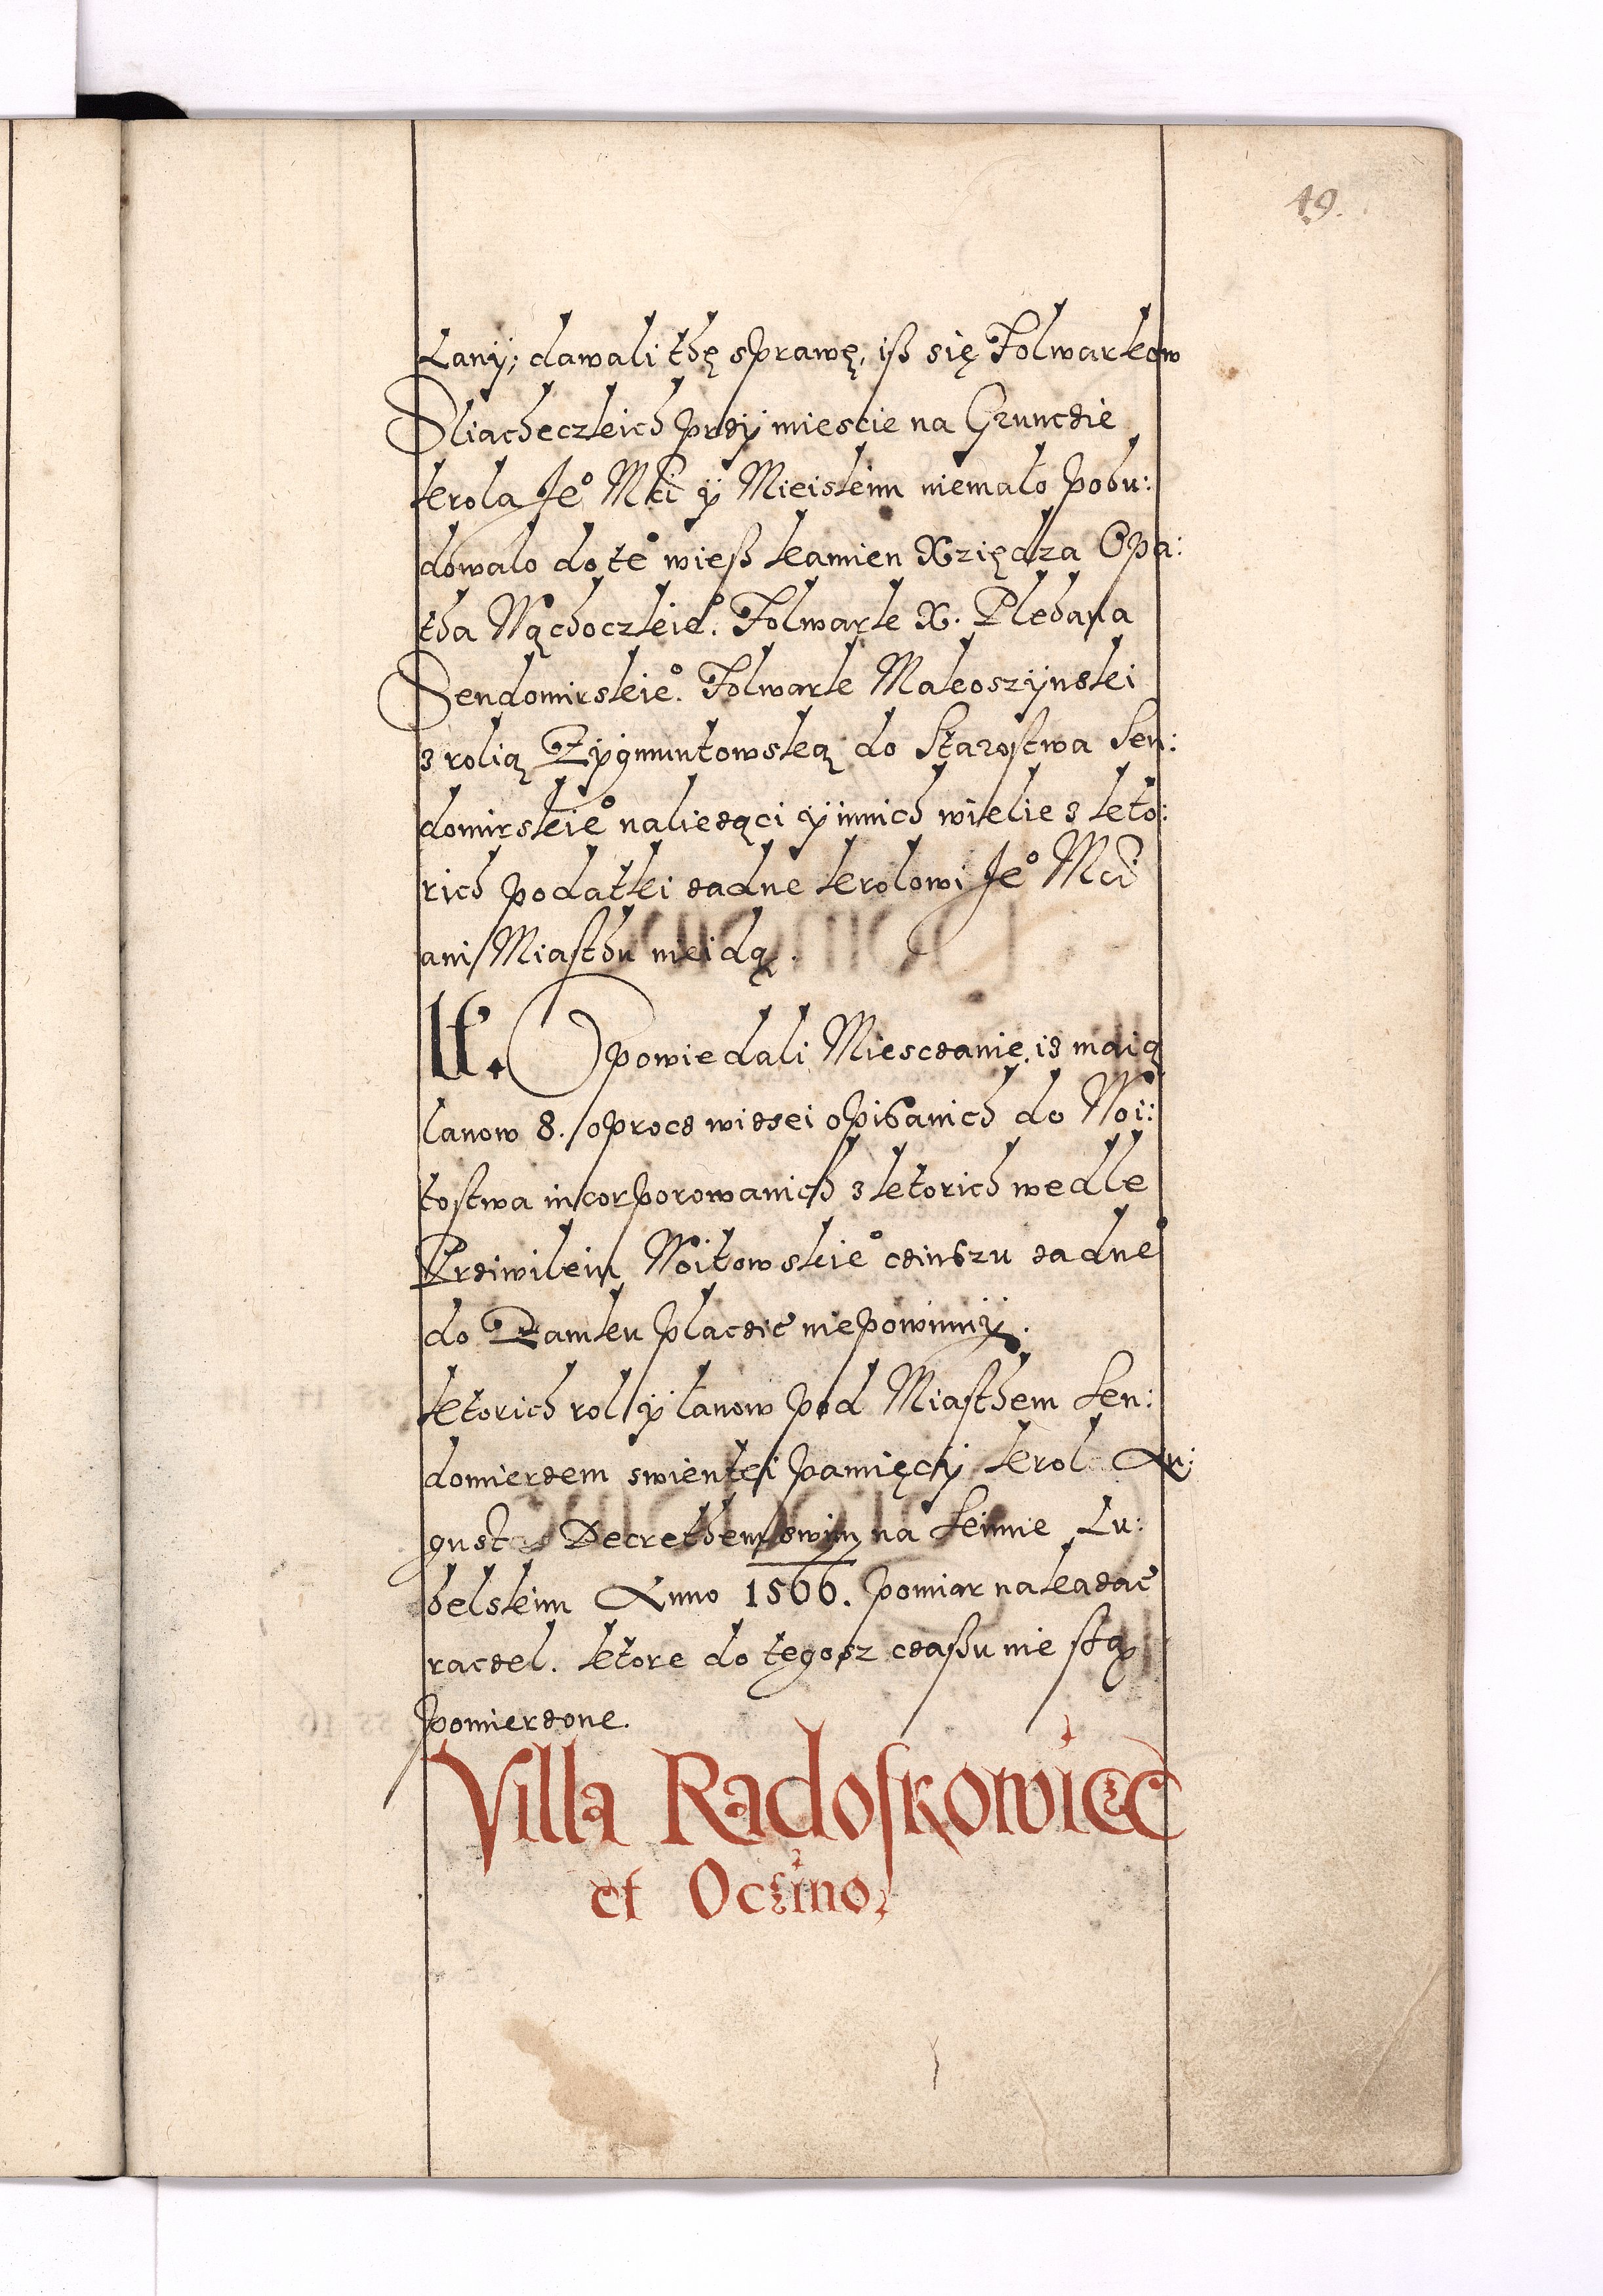 49.
Łany; dawali thę sprawę, iß się Folwarkow
Sliacheczkich przÿ miescie na Grunczie
krola Je° Mci ÿ Mieiskim niemało pobu:
dowalo do te° wieß kamien Xziędza Opa:
tha Wąchoczkie°. Folwark X. Plebana
Sendomirskie°. Folwark Makoszÿnski
z rolią Zÿgmuntowską do Starostwa Sen:
domirskie° naliezązi ÿ innich wielie z kto:
rich podatki zadne krolowi Je° Mci
ani Miasthu nieidą.
It. Opowiedali Miesczanie, iz maią
lanow 8. oprocz wizsei opisanich do Woi:
tostwa incorporowanich z ktorich wedle
Prziwileiu Woitowskie° czinszu zadne°
do Zamku placzic niepowinnÿ.
ktorich rol ÿ lanow pod Miasthem Sen:
domierzem swientei pamięcÿ krol Au:
gust Decrethem swim na Seimie Lu:
belskim Anno 1566. pomiar nakazac
raczel. ktore do tegosz czaßu nie są
pomierzone.
Villa Radoskowicze
et Oczino,